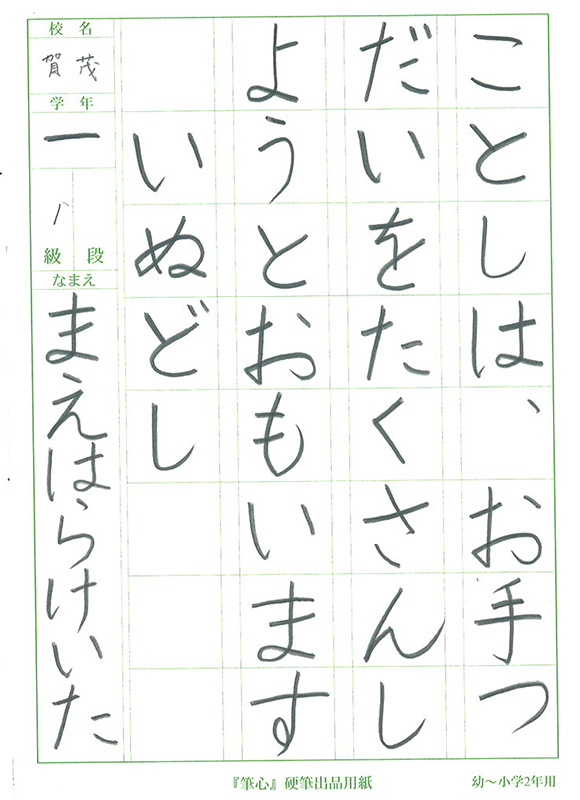 ことしは、お手つ
だいをたくさんし
ようとおもいます
いぬどし
校名
賀茂
学年
一
八
級段
なまえ
まえはらけいた
『筆心』硬筆出品用紙
幼〜小学2年用